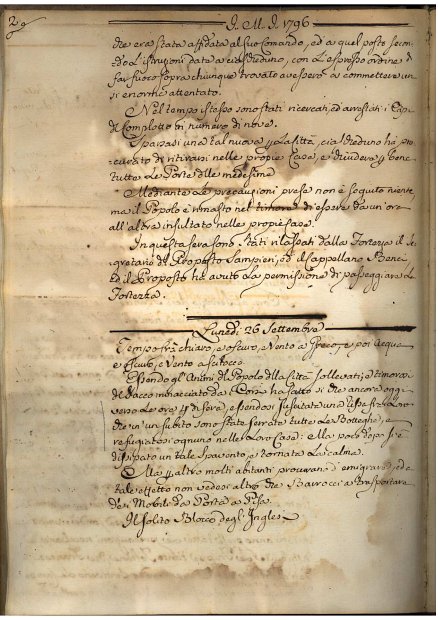 29
J. M. J. 1796
che era stata affidata al suo Comando, ed a quel posto secon-
do L'istruzioni date a ciascheduno, con L'espresso ordine di
far fuoco sopra chiunque trovato avessero a commettere un
si enorme attentato.
Nel tempo stesso sono stati ricercati, ed arrestati i Capi
del Complotto in numero di nove.
Sparsasi una tal nuova p La Città, ciascheduno ha pro-
curato di ritirarsi nelle proprie Case, e chiudere p bene
tutte Le Porte delle medesime
Mediante Le precauzioni prese non è seguito niente,
ma il Popolo è rimasto nel timore di essere da un'ora
all'altra insultato nelle proprie case.
In questa sera sono stati rilassati dalla Fortezza il Se-
gretario del Proposto Sampieri, ed il Cappellano Beni,
ed il Proposto ha avuto La permissione di passeggiare La
Fortezza.
Lunedì 26 Settembre
Tempo frà chiaro, e oscuro, e Vento a e poi Acqua
e Oscuro, e Vento a Scirocco.
Essendo gl'Animi del Popolo della Città sollevati, e timorosi
del Sacco minacciato da Corsi ha fatto si che ancora oggi
verso Le ore di sera, essendosi suscitata una
che in un subito sono state serrate tutte Le Botteghe, e
refugiatosi ognuno nelle Loro Case: ma poco dopo si è
dissipato un tale Spavento, e tornata La calma.
Ma p altro molti abitanti procurano d'emigrare, ed e
tale effetto non vedesi altro che Barocci a trasportare
de' Mobili da Porta a Pisa.
Il solito Blocco degl'Inglesi